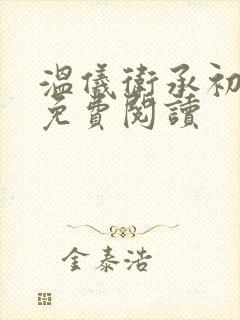 溫儀衛承初
免費閱讀
金泰浩